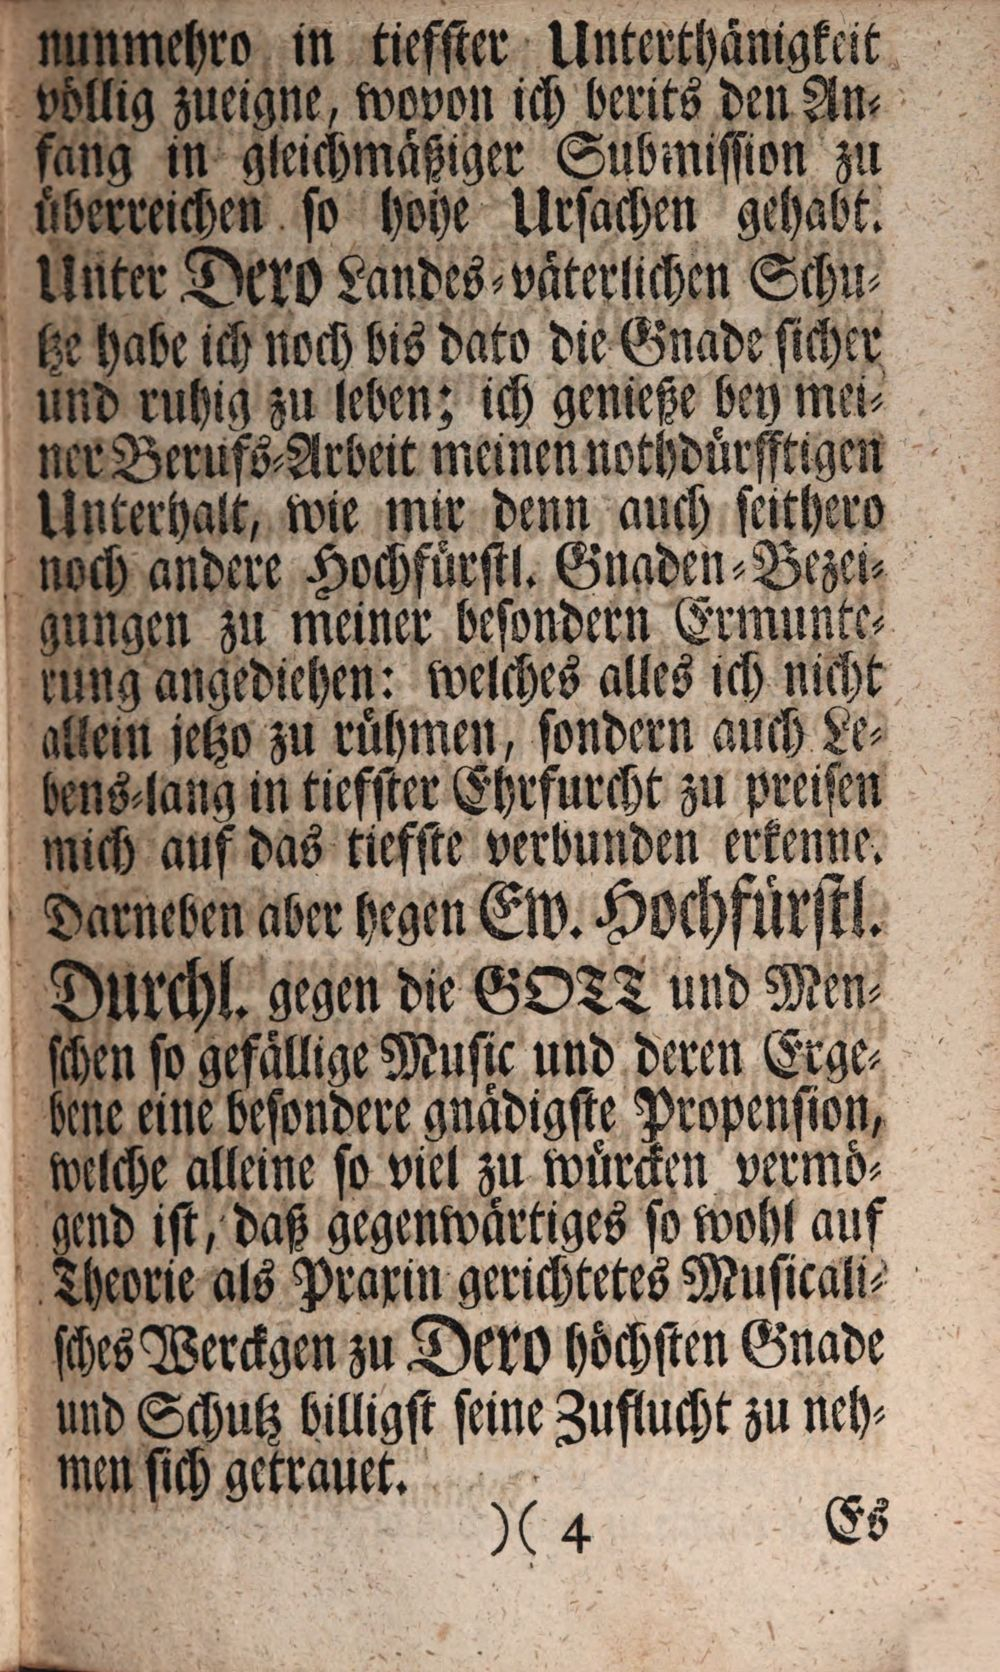 nunmehro in tieffster Unterthänigkeit
völlig zueigne, wovon ich berits den An-
fang in gleichmäßiger Submission zu
überreichen so hohe Ursachen gehabt.
Unter Dero Landes-väterlichen Schu-
tze habe ich noch bis dato die Gnade sicher
und ruhig zu leben; ich genieße bey mei-
ner Berufs-Arbeit meinen nothdürfftigen
Unterhalt, wie mir denn auch seithero
noch andere Hochfürstl. Gnaden-Bezei-
gungen zu meiner besondern Ermunte-
rung angediehen: welches alles ich nicht
allein jetzo zu rühmen, sondern auch Le-
bens-lang in tieffster Ehrfurcht zu preisen
mich auf das tiefste verbunden erkenne.
Darneben aber hegen Ew. Hochfürstl.
Durchl. gegen die GOTT und Men-
schen so gefällige Music und deren Erge-
bene eine besondere gnädigste Propension,
welche alleine so viel zu würcken vermö-
gend ist, daß gegenwärtiges so wohl auf
Theorie als Praxin gerichtetes Musicali-
sches Werckgen zu Dero höchsten Gnade
und Schutz billigst seine Zuflucht zu neh-
men sich getrauet.
)( 4 Es